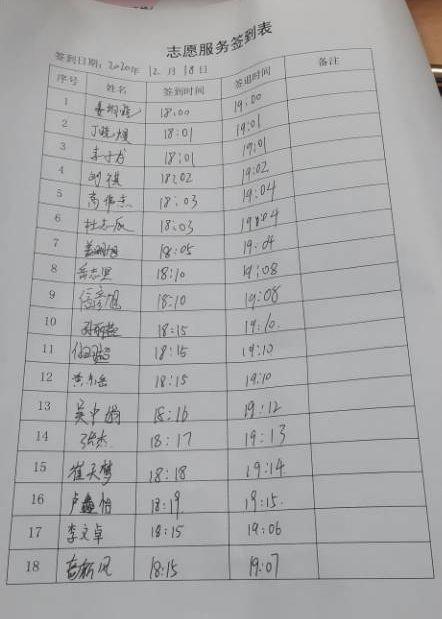 志愿服务签到表
签到日期：2020年 12月 18日
序号 姓名 签到时间 签退时间 备注
1 18:00 19:00
2 丁晓 18:01 19:01
3 李子龙 18:01 19:01
4 刘祺 18:02 19:02
5 高伟杰 18:03 19:04
6 杜志成 18:03 19:04
7 18:05 19:04
8 岳志军 18:10 19:08
9 18:10 19:08
10 18:15 19:10.
11 18:15 19:10
12 18:15 19:10
13 吴中娟 18:16 19:12
14 张杰 18:17 19:13
15 崔天梦 18:18 19:14
16 卢 怡 18:19 19:15.
17 李文卓 18:15 19:06
18 18:15 19:07